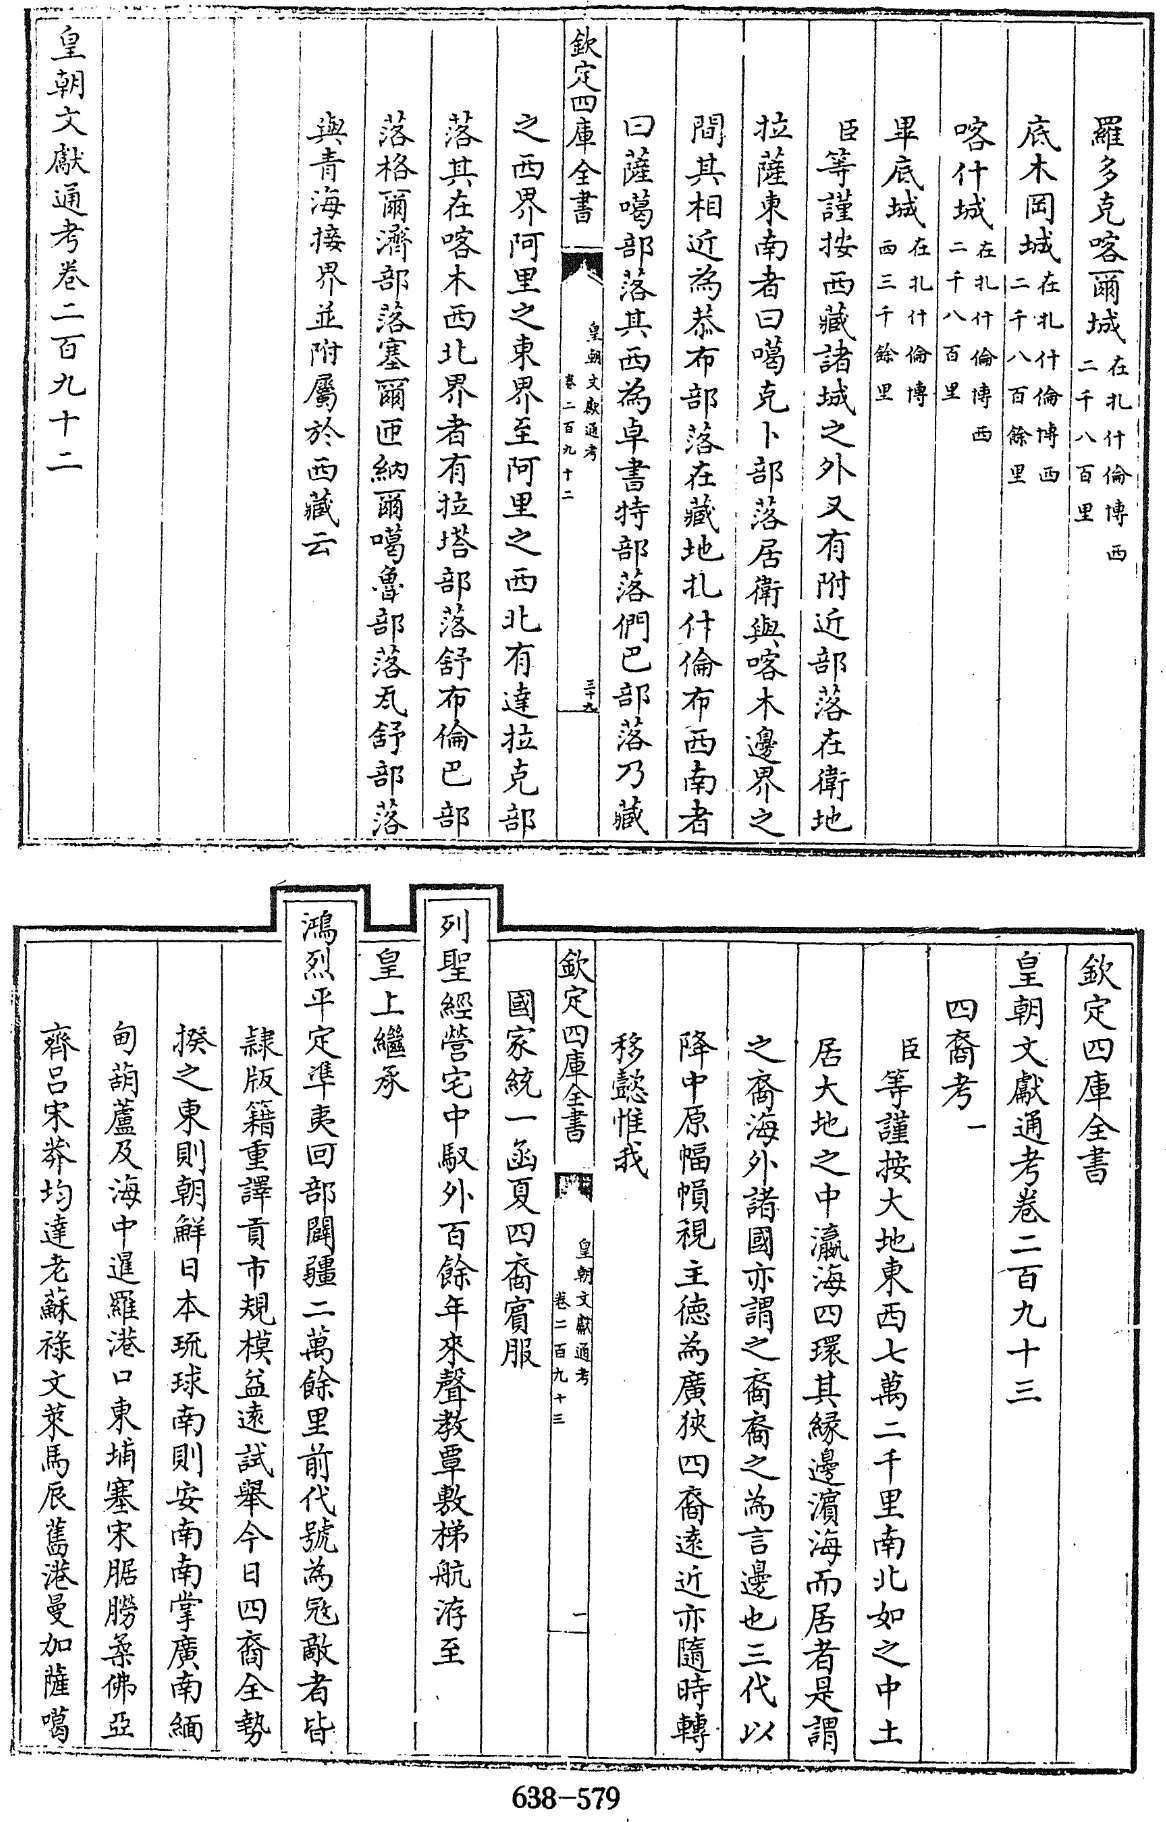 羅多克喀爾城在扎什倫博西二千八百里
底木岡城在扎什倫博西二千八百餘里
喀什城在扎什倫博西二千八百里
畢底城在扎什倫博西三千餘里
臣等謹按西藏諸城之外又有附近部落在衛地
拉薩東南者曰噶克卜部落居衛與喀木邊界之
間其相近為恭布部落在藏地扎什倫布西南者
曰薩噶部落其西為卓書特部落們巴部落乃藏
欽定四庫全書
皇朝文獻通考
卷二百九十二
三十九
之西界阿里之東界至阿里之西北有達拉克部
落其在喀木西北界者有拉塔部落舒布倫巴部
落格爾濟部落塞爾匝納爾噶魯部落瓦舒部落
與青海接界並附屬於西藏云
皇朝文獻通考卷二百九十二
欽定四庫全書
皇朝文獻通考卷二百九十三
四裔考一
臣等謹按大地東西七萬二千里南北如之中土
居大地之中瀛海四環其緣邊濱海而居者是謂
之裔海外諸國亦謂之裔裔之為言邊也三代以
降中原幅幀視主德為廣狹四裔遠近亦隨時轉
移懿惟我
欽定四庫全書
皇朝文獻通考
卷二百九十三
一
國家統一函夏四裔賓服
列聖經營宅中馭外百餘年來聲教覃敷梯航洊至
皇上繼承
鴻烈平定準夷回部闢疆二萬餘里前代號為寇敵者皆
隸版籍重譯貢市規模益遠試舉今日四裔全勢
揆之東則朝鮮日本琉球南則安南南掌廣南緬
甸葫蘆及海中暹羅港口東埔寨宋腒朥柔佛亞
齊呂宋莽均達老蘇祿文萊馬辰舊港曼加薩噶
638-579